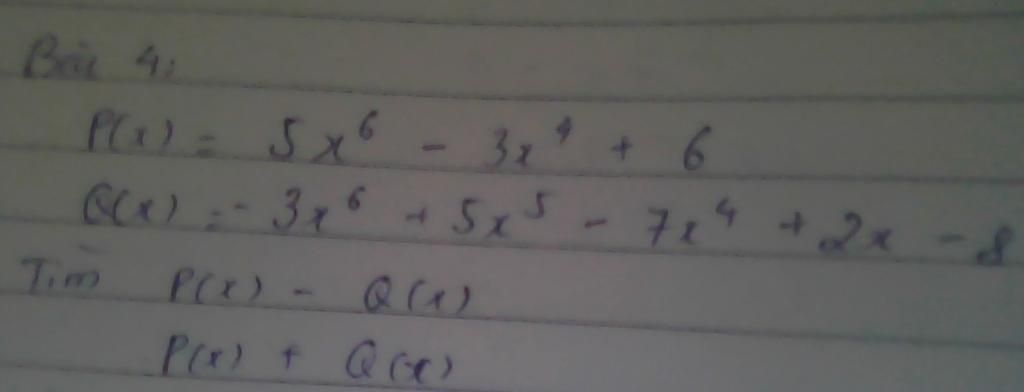 Bài 4:
P(x) = 5x⁶ - 3x⁴ + 6
Q(x) = - 3x⁶ + 5x⁵ - 7x⁴ + 2x - 8
Tìm P(x) - Q(x)
P(x) + Q(x)